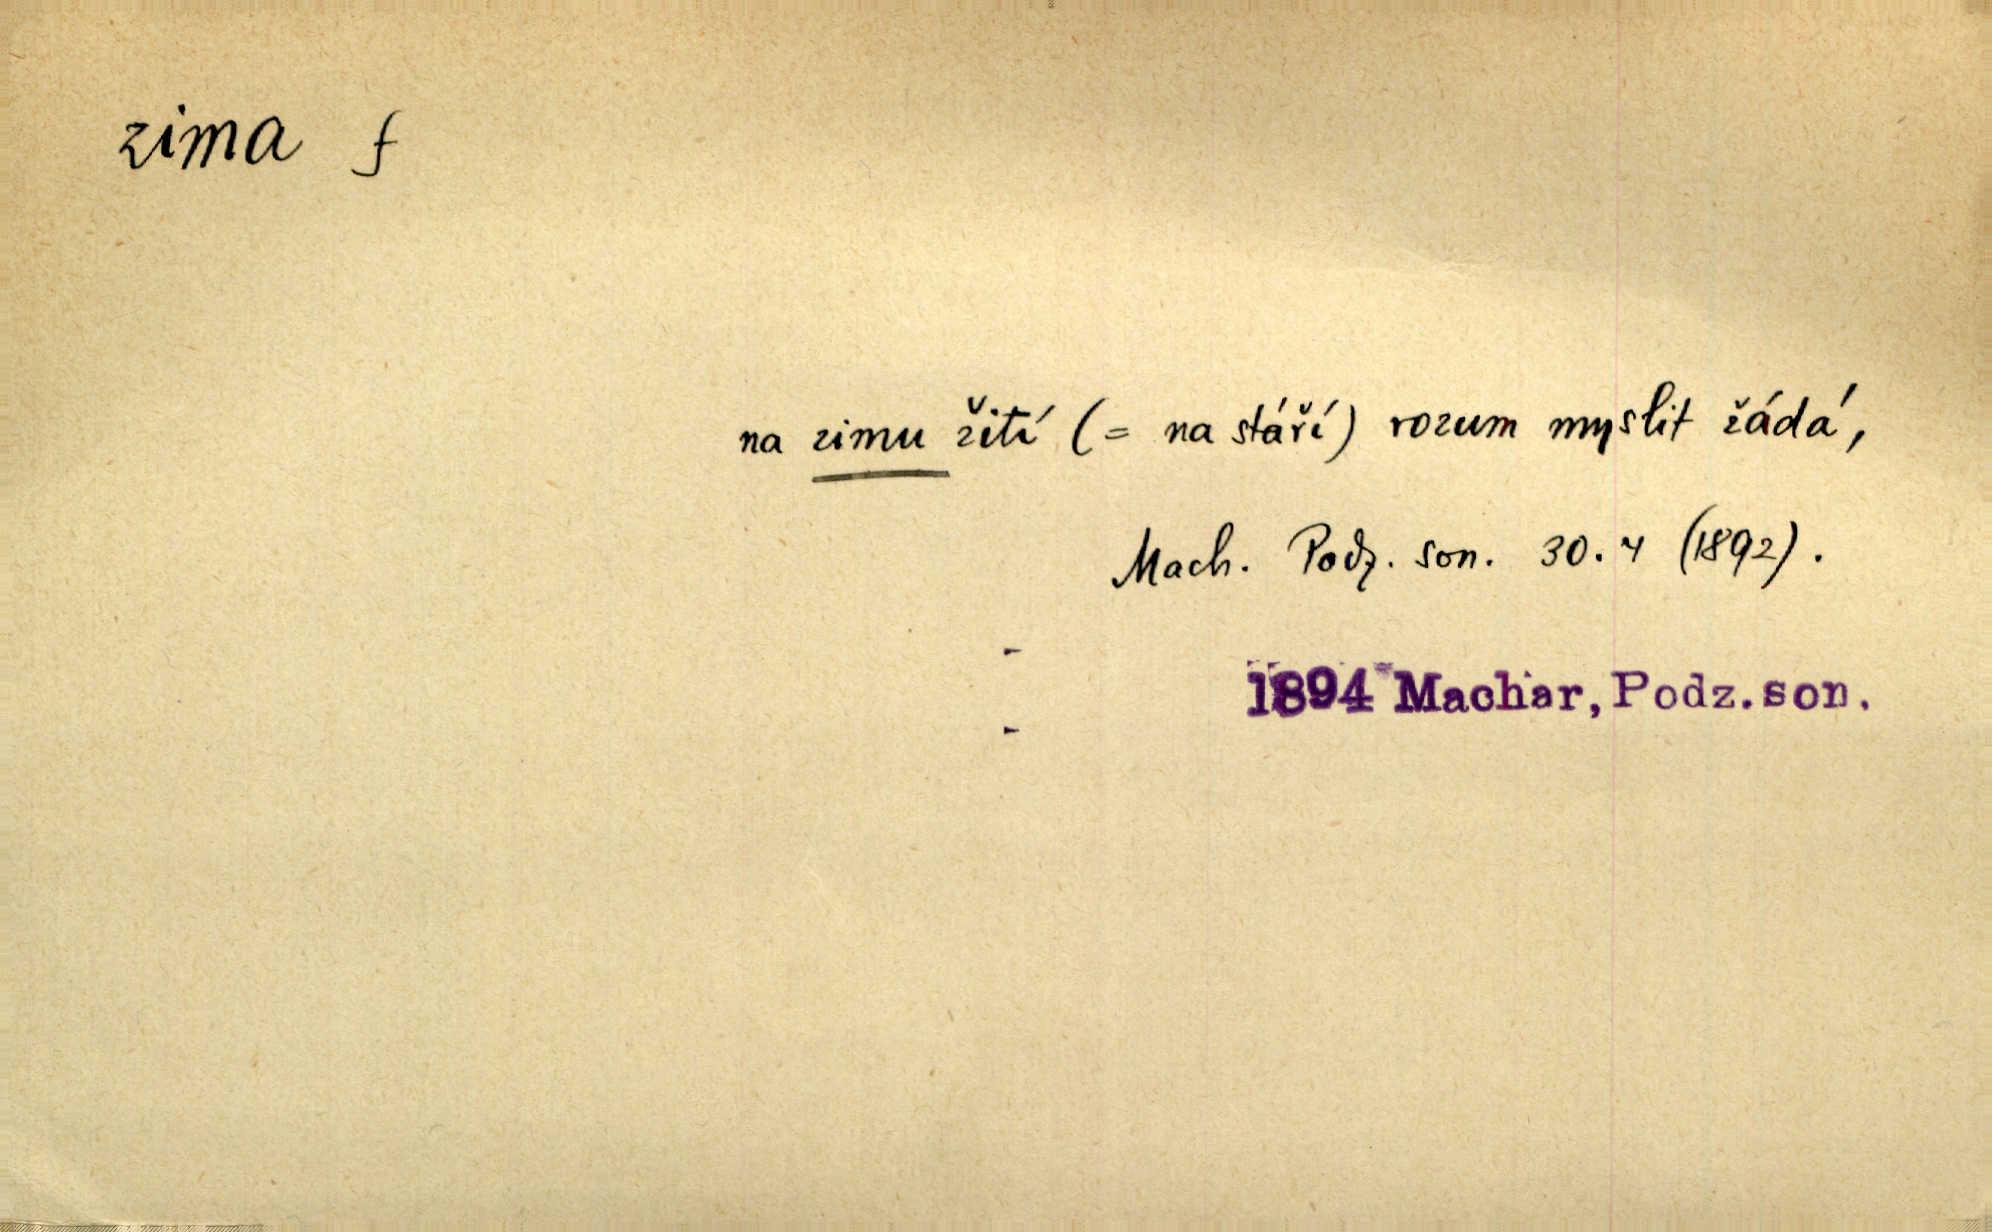 zima f
na zimu žití (= na stáří) rozum myslit žádá,
Mach. Podz. son. 30. 4 (1892).
1894 Machar, Podz. son.